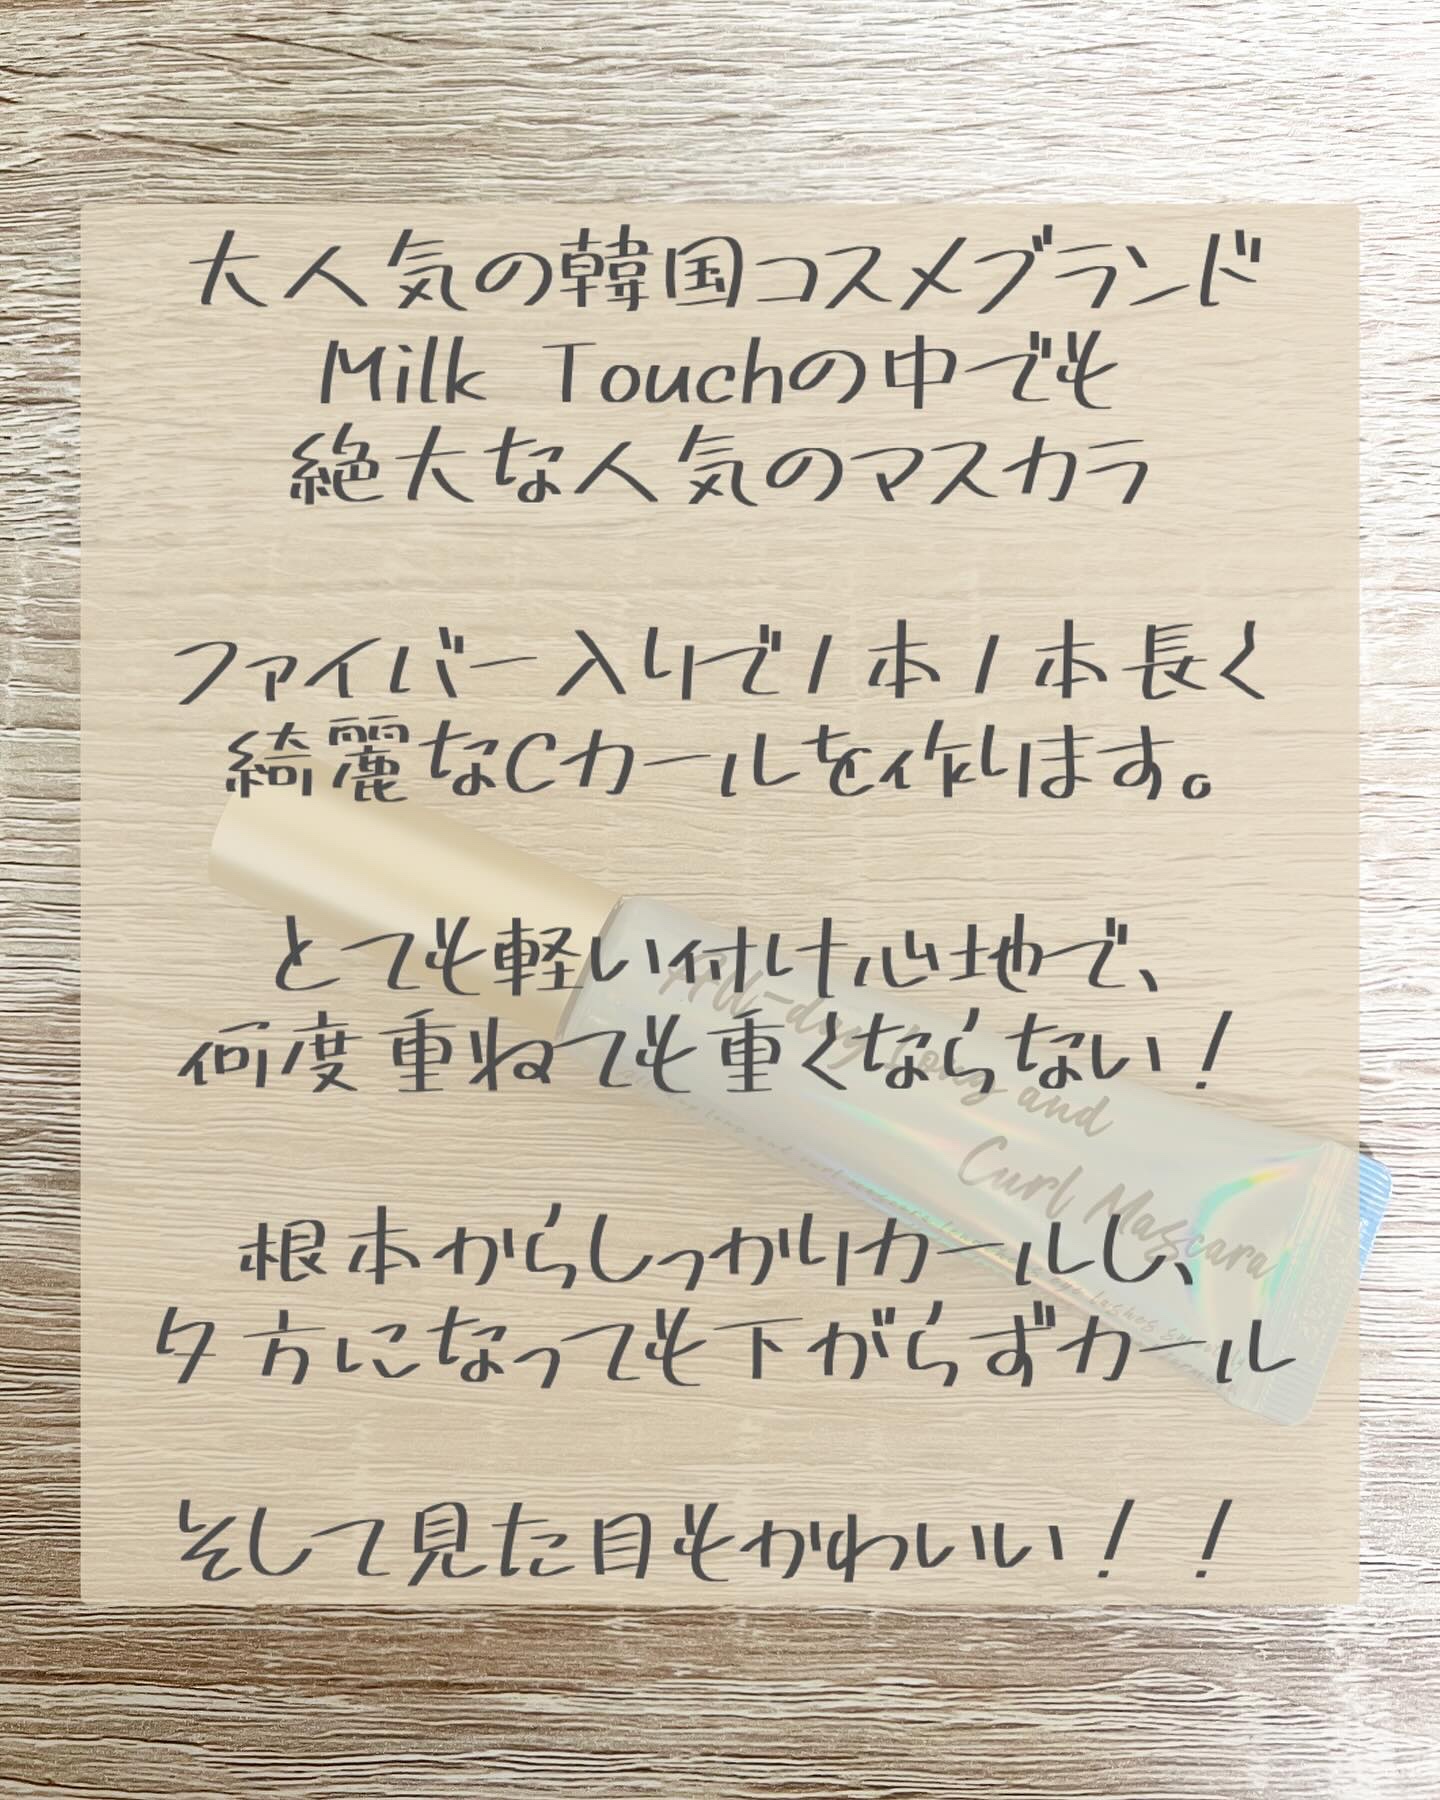 大人気の韓国コスメブランド
Milk Touchの中でも
絶大な人気のマスカラ
ファイバー入りで1本1本長く
綺麗なCカールを作ります。
とても軽い付け心地で、
何度重ねても重くならない！
根本からしっかりカールし、
夕方になっても下がらずカール
そして見た目もかわいい！！
All-day Long and
Curl Mascara